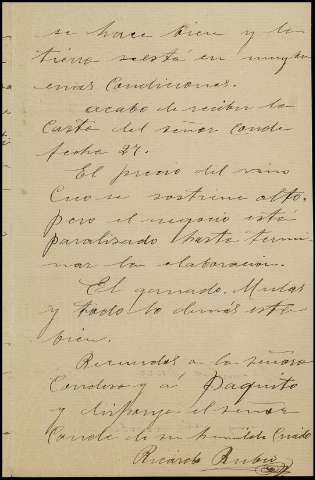 se hace bien y la
tierra está en muy bu
enas condiciones.
acabo de recibir la
carta del señor conde
fecha 27.
El precio del vino
Creo se sostiene alto,
pero el negocio está
paralisado hasta termi
nar la elaboracion.
El ganado, Mulas
y todo lo demás está
bien.
Recuerdos a la señora
Condesa y á Paquito
y disponga el señor
Conde de su humilde Criado
Ricardo Rubio